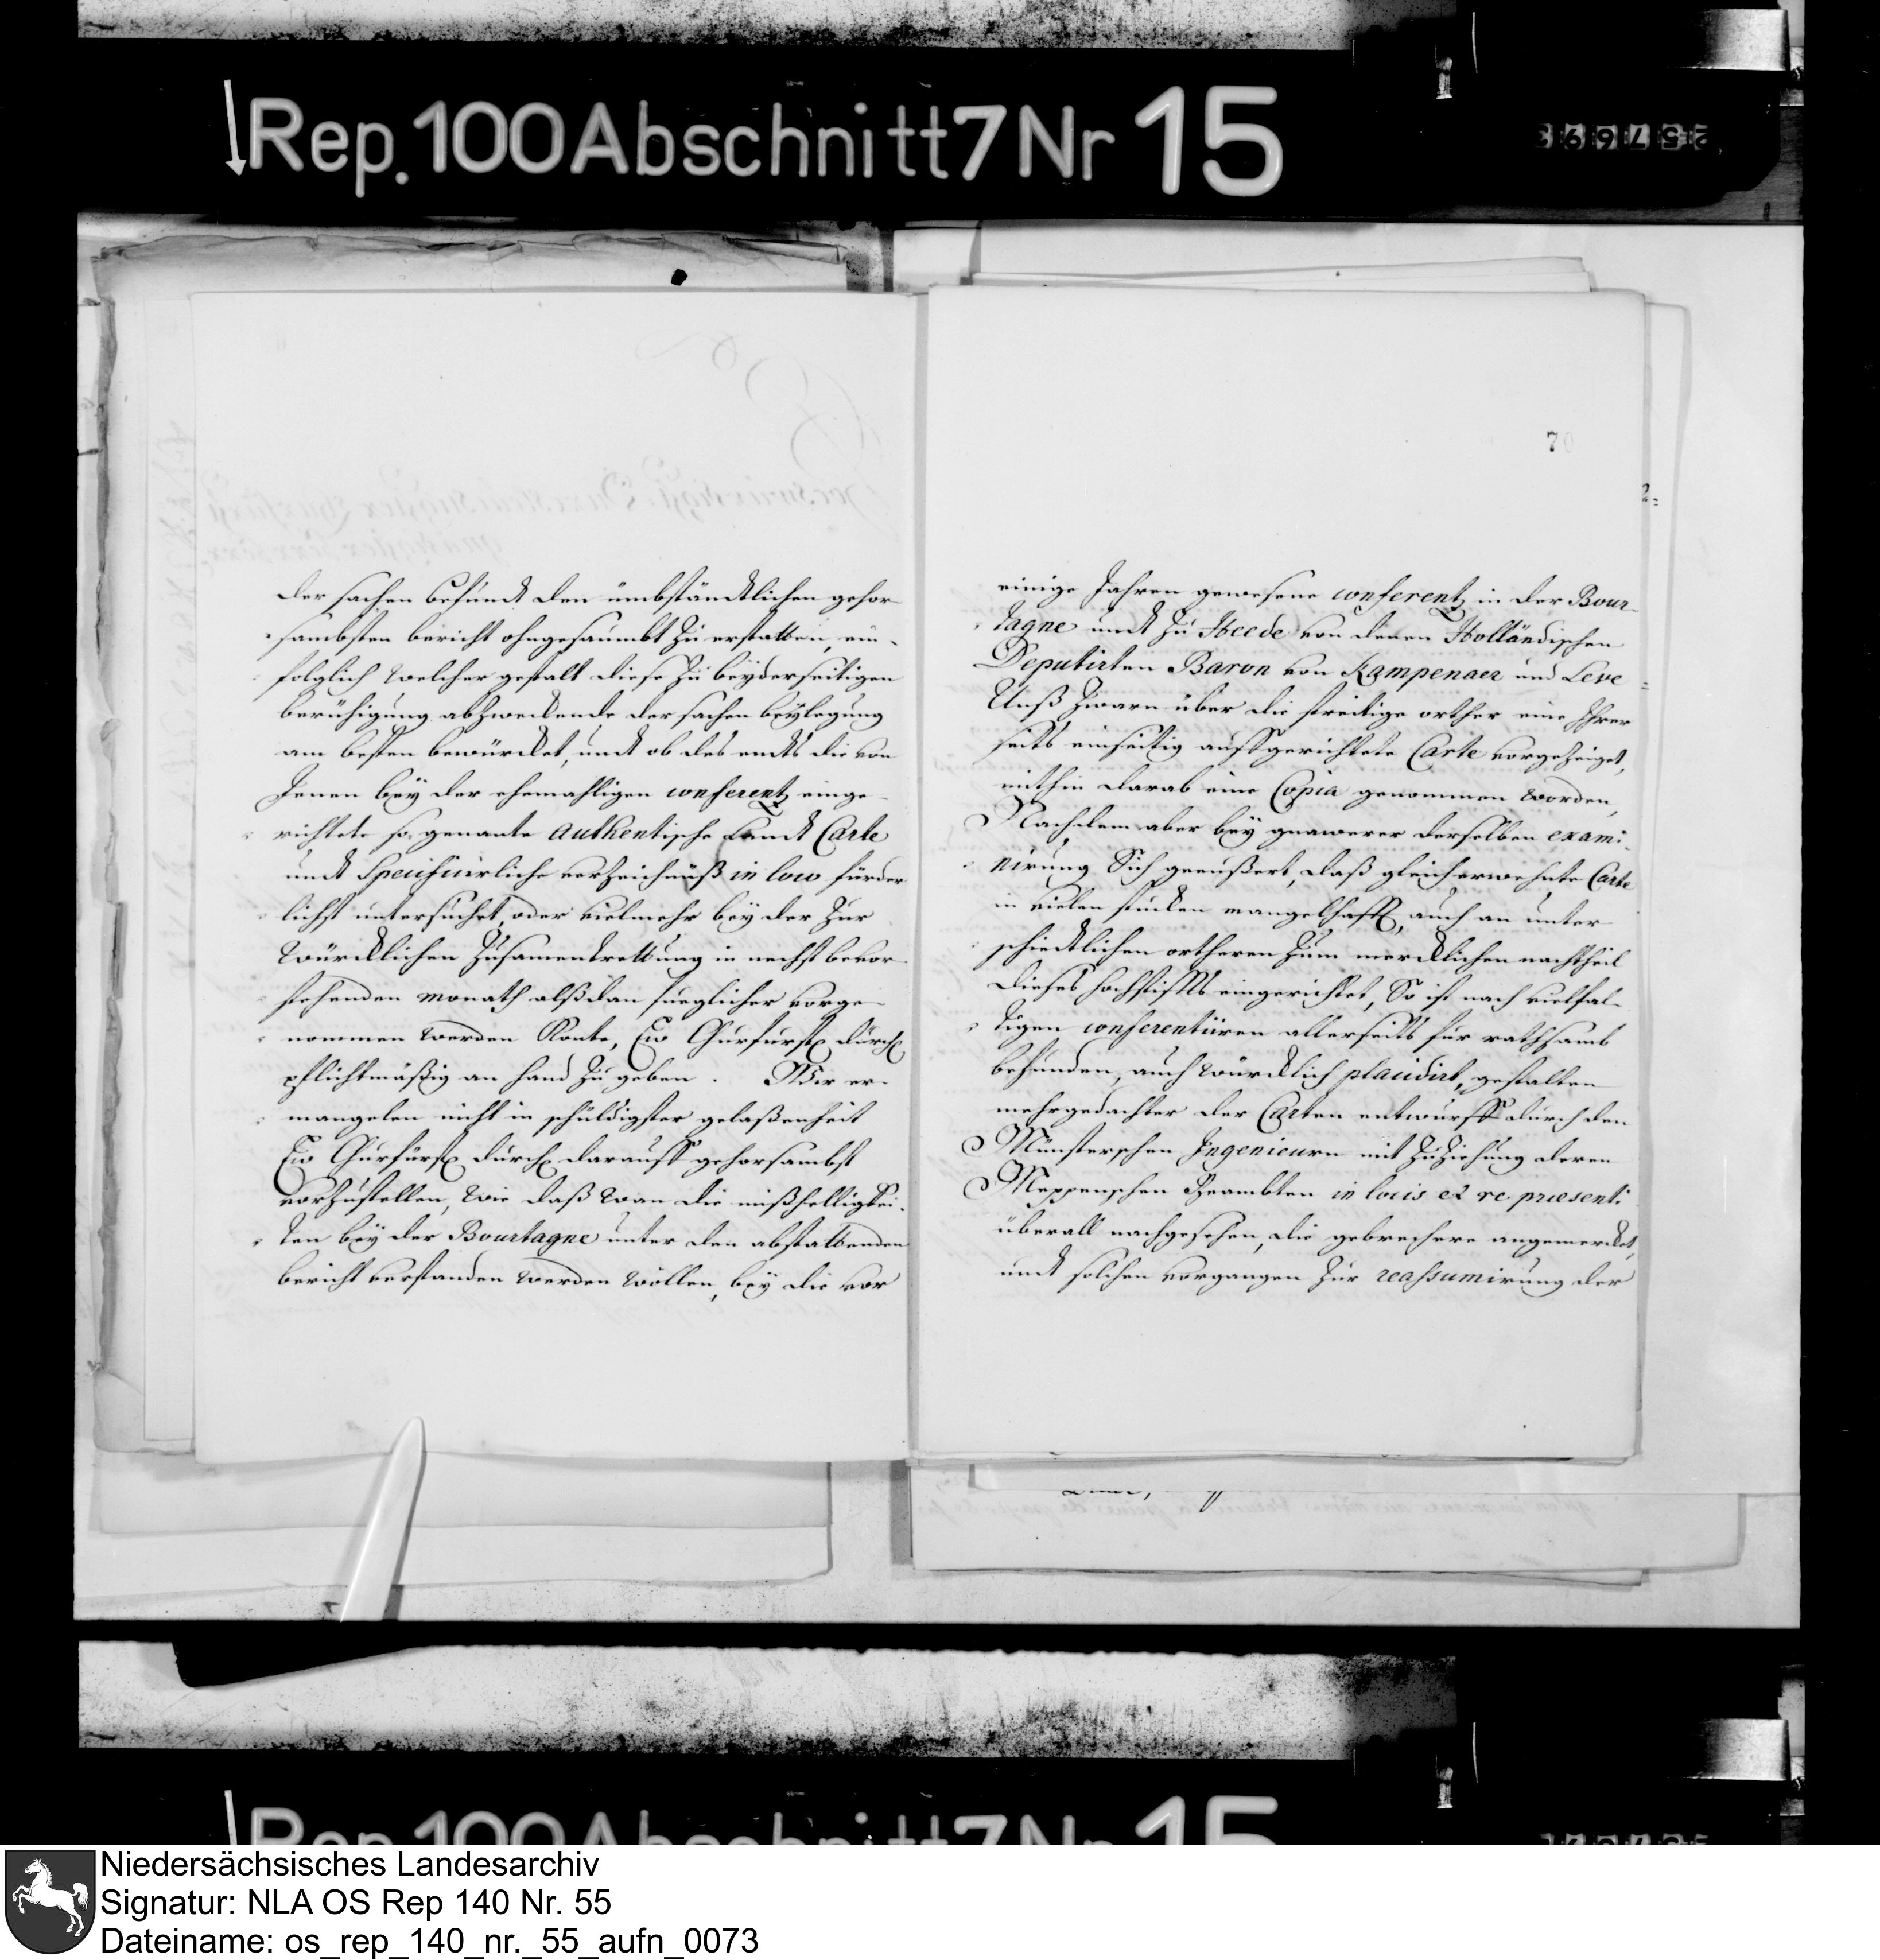 Rep. 100 Abschnitt 7 Nr 15
der sachen befundt den umbständtlichen gehor
sambsten bericht ohngesaumbt zu erstatten, ein-
folglich welcher gestalt diese zu beyderseitigen
beruhigung abzweckende der sachen beylegung
am besten bewürcket, undt ob des endts die von
Jenen bey der ehemahligen conferentz einge-
richtete so genante authentische Landt Carte
undt Specificirliche verzeichnüß in loco fürder
lichst untersuchet, oder vielmehr bey der zur
würcklichen zusamentrettung in nechst bevor
stehenden monath alßdan füeglicher vorge-
nommen werden Konte, Ew Churfürstl durchl
pflichtmäßig an hand zu geben. Wir er-
mangelen nicht in schuldigster gelaßenheit
Ew Churfürstl durchl darauff gehorsambst
vorzustellen, wie daß wan die mißhelligkei-
ten bey der Bourtagne unter den abstattenden
bericht verstanden werden wollen, bey die vor
70
einige Jahren gewesene conferentz in der Bour-
tagne undt zu Heede von denen Holländischen
Deputirten Baron von Kampenaer und Leve
Unß zwarn über die streitige orther eine Ihrer
seits einseitig auffgerichtete Carte vorgezeiget,
mithin darab eine Copia genommen worden,
Nachdem aber bey gnawerer derselben exami-
nirung Sich geeußert, daß gleicherwehnte Carte
in vielen stucken mangelhafft, auch an unter
schiedtlichen ortheren zum mercklichen nachtheil
dieses hochstiffts eingerichtet, So ist nach vielfal-
tigen conferentiiren allerseits für rathsamb
befunden, auch würcklich placidirt, gestalten
mehrgedachter der Carten entwurff durch den
Münsterschen Ingenieurn mit zuziehung deren
Meppenschen Beambten in locis et re praesenti
überall nachgesehen, die gebrechere angemercket,
undt solchen vorgangen zur reassumirung der
Niedersächsisches Landesarchiv
Signatur: NLA OS Rep 140 Nr. 55
Dateiname: os_rep_140_nr._55_aufn_0073